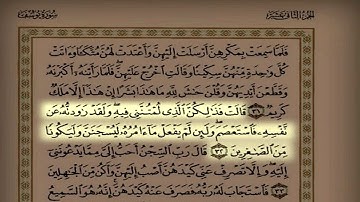 الجزء الثاني عشر
سورة يوسف
فلما سمعت بمكرهن أرسلت إليهن وأعتدت لهن متكئا وءاتت
كل واحدة منهن سكينا وقالت اخرج عليهن فلما رأينه أكبرنه
وقطعن أيديهن وقلن حش لله ما هذا بشرا إن هذا إلا ملك
كريم ٣١ قالت فذلكن الذي لمتنني فيه ولقد رودته عن
نفسه فاستعصم ولئن لم يفعل ما ءامره ليسجنن وليكونا
من الصغرين ٣٢ قال رب السجن أحب إلي مما يدعونني
إليه وإلا تصرف عني كيدهن أصب إليهن وأكن من الجهلين
٣٣ فاستجاب له ربه فصرف عنه كيدهن إنه هو السميع